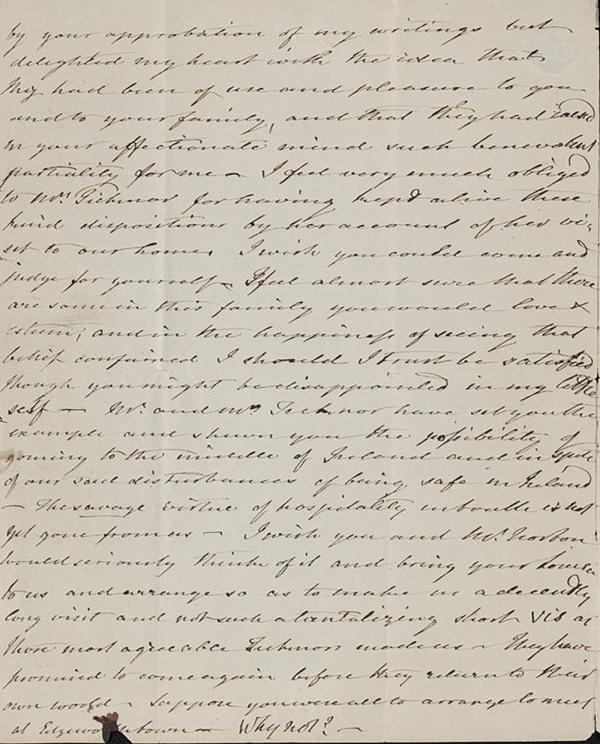 by your approbation of my writings but
delighted my heart with the idea that
they had been of use and pleasure to you
and to your family, and that they had raised
in your affectionate mind such benevolent
partiality for me – I feel very much obliged
to Mrs. Ticknor for having kept alive these
kind dispositions by her account of her vi-
sit to our home. I wish you could come and
judge for yourself – I feel almost sure that there
are some in this family you would love &
esteem; and in the happiness of seeing that
belief confirmed I should I trust be satisfied
though you might be disappointed in my little
self – Mr. and Mrs. Ticknor have set you the
example and shewn you the possibility of
coming to the middle of Ireland and in spite
of our said disturbances of being safe in Ireland
– The savage virtue of hospitality is not
yet gone from us – I wish you and Mr. Norton
would seriously think of it and bring your
to us and arrange so as to make us a decently
long visit and not such a tantalizing short visit as
those most agreeable Ticknors made us – They have
promised to come again before they return to their
own world – Suppose you were all to arrange to meet
at Edgeworthstown – Why not? –